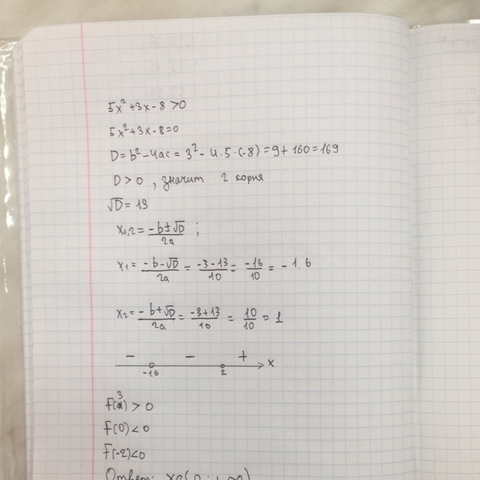 5x²+3x-8>0
5x²+3x-8=0
D=b²-4ac=3²-4·5·(-8)=9+160=169
D>0, значит 2 корня
√D=13
x₁,₂=(-b±√D)/2a;
x₁=(-b-√D)/2a=(-3-13)/10=-16/10=-1.6
x₂=(-b+√D)/2a=(-3+13)/10=10/10=1
- - + x
-1.6 2
f(3)>0
f(0)<0
f(-2)<0
Ответ: